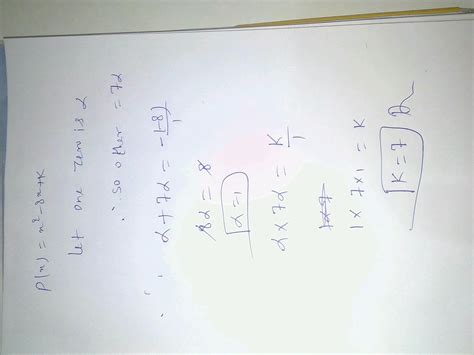 P(x) = x² - 8x + K
let one zero is α
∴ so other = 7α
∴ α + 7α = -(-8)/1
8α = 8
α = 1
α × 7α = K/1
1 × 7 × 1 = K
K = 7